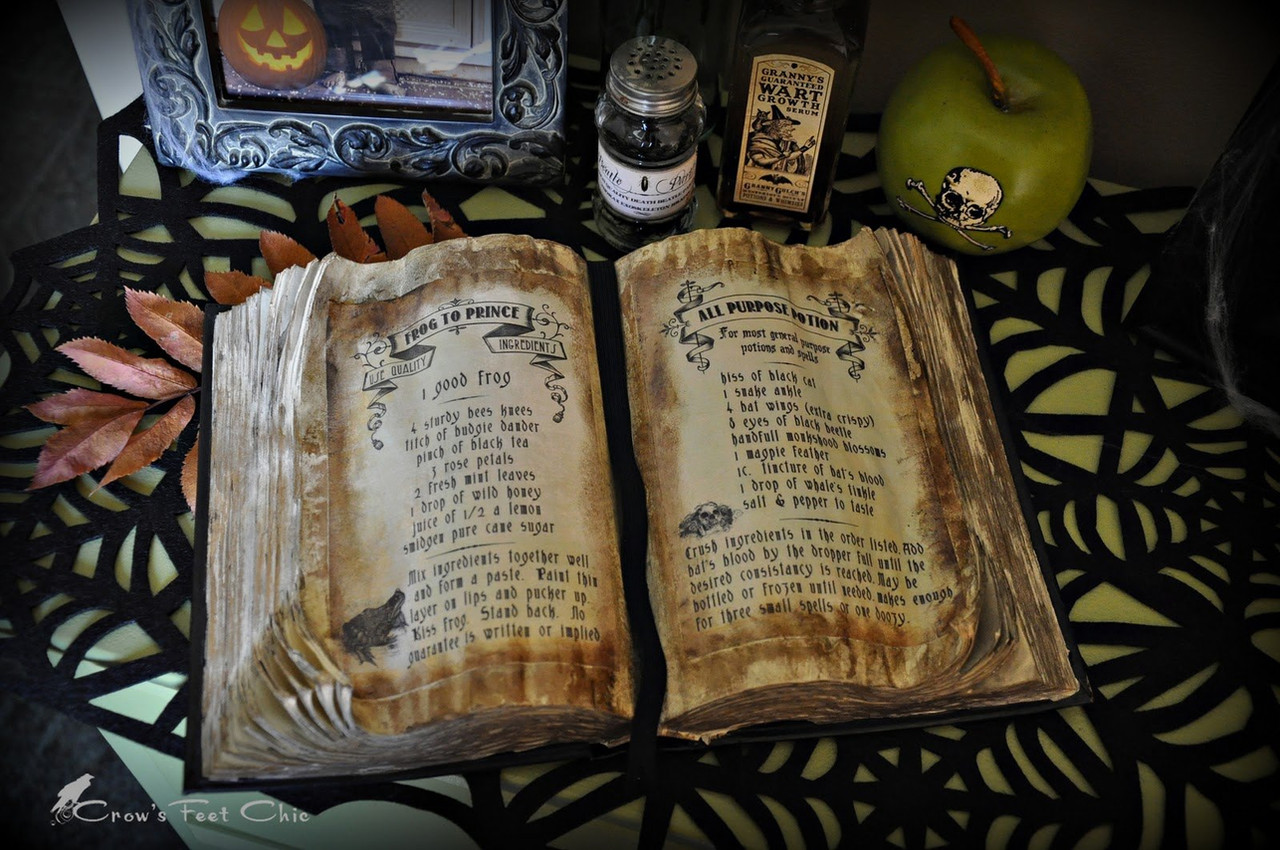 GRANNY'S
GUARANTEED
WART
GROWTH
SERUM
GRANNY GULCH'S
FROG TO PRINCE
USE QUALITY
INGREDIENTS
1 good frog
4 sturdy bees knees
titch of budgie dander
pinch of black tea
3 rose petals
2 fresh mint leaves
1 drop of wild honey
juice of 1/2 a lemon
smidgen pure cane sugar
Mix ingredients together well
and form a paste. Paint thin
layer on lips and pucker up.
Kiss frog. Stand back. No
guarantee is written or implied
ALL PURPOSE POTION
For most general purpose
potions and spells
hiss of black cat
1 snake ankle
4 bat wings (extra crispy)
8 eyes of black beetle
handfull monkshood blossoms
1 magpie feather
1c. tincture of bat's blood
1 drop of whale's tinkle
salt & pepper to taste
Crush ingredients in the order listed. Add
bat's blood by the dropper full until the
desired consistancy is reached. May be
bottled or frozen until needed. makes enough
for three small spells or one doozy.
Crow's Feet Chic